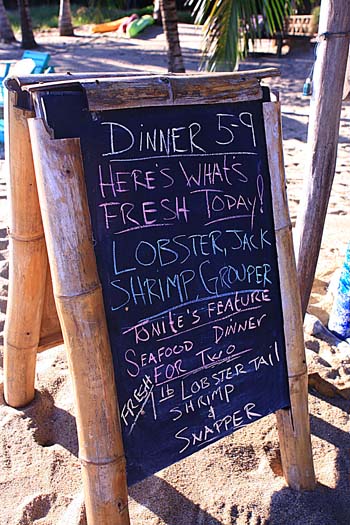 DINNER 5-9
HERE'S WHAT'S
FRESH TODAY!
LOBSTER, JACK
SHRIMP GROUPER
TONITE'S FEATURE
SEAFOOD DINNER
FOR TWO
FRESH 1 lb LOBSTER TAIL
SHRIMP
&
SNAPPER